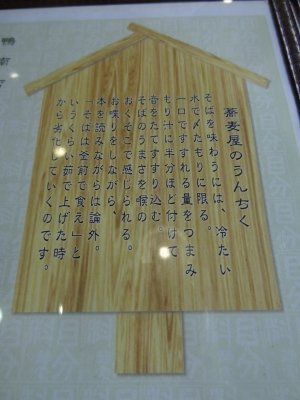 蕎麦屋のうんちく
そばを味わうには、冷たい
水で〆たもりに限る。
一口ですすれる量をつまみ
もり汁に半分ほど付けて
音をたてすすり込む。
そばのうまさを喉の
おくそこで感じられる。
お喋りをしながら、
本を読みながらは論外。
「そばは釜前で食え」と
いうくらい茹で上げた時
から劣化していくのです。
鴨南